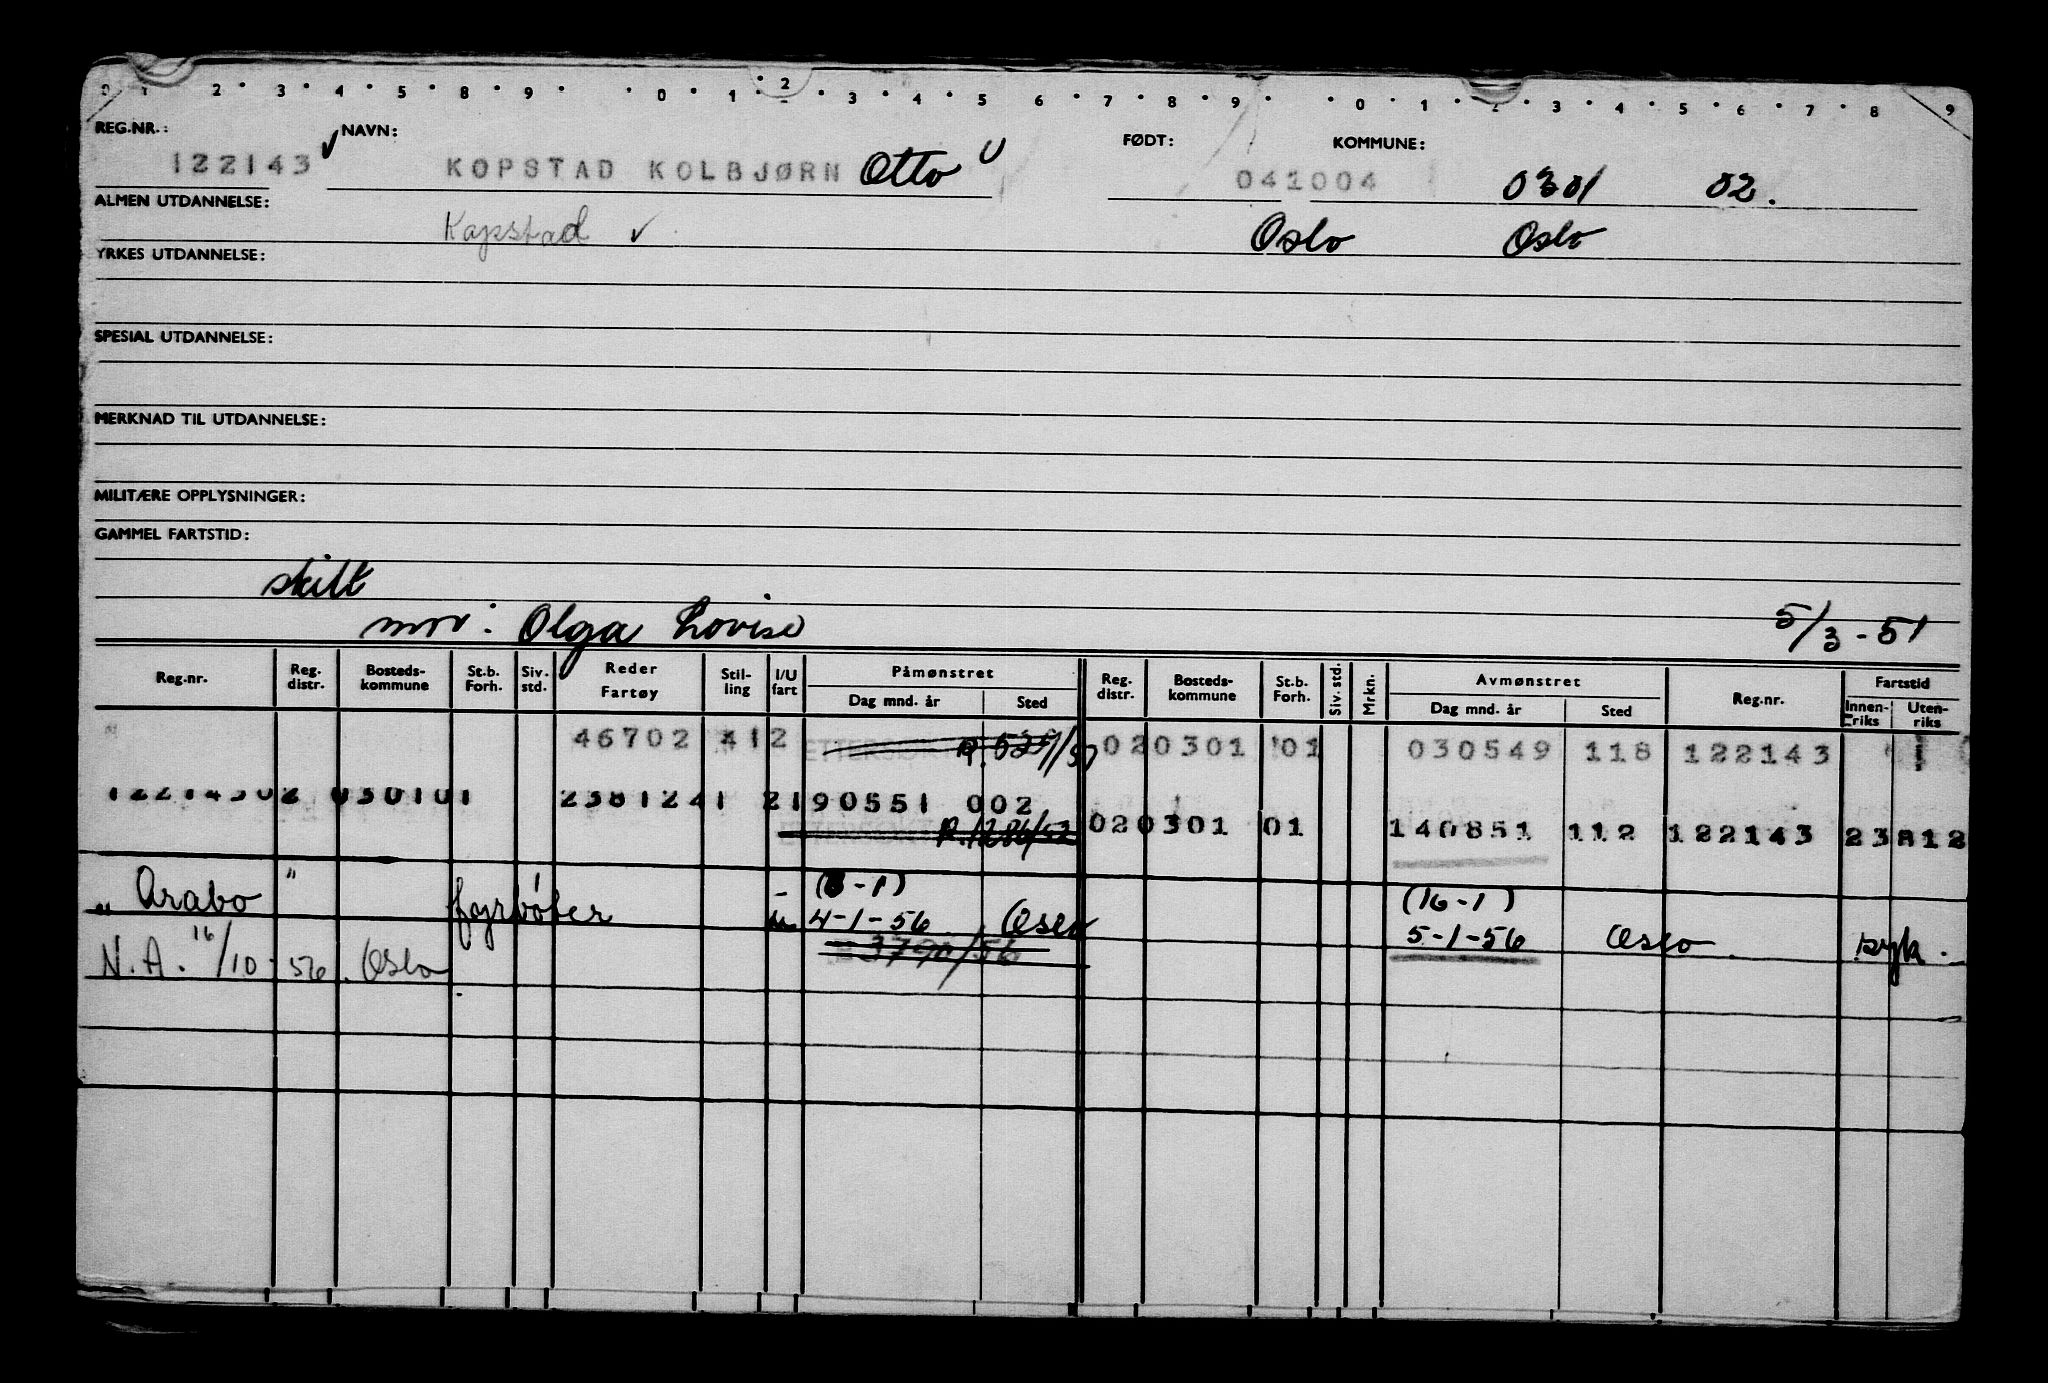 0 1 2 3 4 5 8 9 0 1 2 3 4 5 6 7 8 9 0 1 2 3 4 5 6 7 8 9
REG.NR.: NAVN: FØDT: KOMMUNE:
122143 KOPSTAD KOLBJØRN Otto 041004 0301 02.
ALMEN UTDANNELSE:
Kopstad Oslo Oslo
YRKES UTDANNELSE:
SPESIAL UTDANNELSE:
MERKNAD TIL UTDANNELSE:
MILITÆRE OPPLYSNINGER:
GAMMEL FARTSTID:
skilt
mor: Olga Lovise 5/3-51
Reg.nr. Reg. distr. Bosteds-kommune St.b. Forh. Siv. std. Reder Fartøy Stil-ling I/U fart Påmønstret Dag mnd. år Sted Reg. distr. Bosteds-kommune St.b. Forh. Siv. std. Mrkn. Avmønstret Dag mnd. år Sted Reg.nr. Fartstid Innen-riks Uten-riks
46702 412 020301 01 030549 118 122143
122143 02 030101 2381241 2190551 002
R.1286/52 020301 01 140851 112 122143 23812
" Arabo " fyrbøter (3-1) (16-1)
u 4-1-56 Oslo 5-1-56 Oslo syk.
N.A. 16/10-56. Oslo